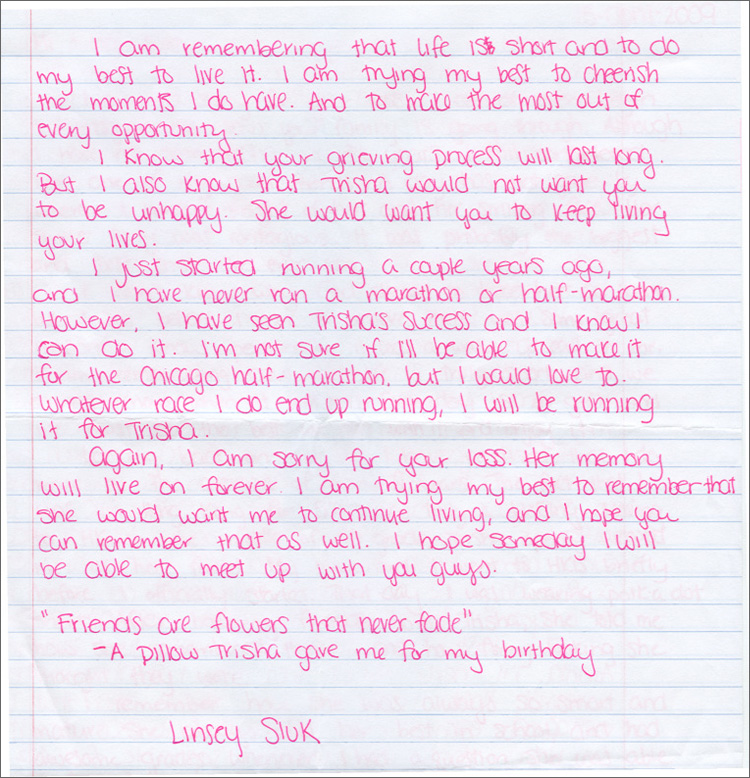 I am remembering that life is short and to do
my best to live it. I am trying my best to cherish
the moments I do have. And to make the most out of
every opportunity.
I know that your grieving process will last long.
But I also know that Trisha would not want you
to be unhappy. She would want you to keep living
your lives.
I just started running a couple years ago,
and I have never ran a marathon or half-marathon.
However, I have seen Trisha's success and I know I
can do it. I'm not sure if I'll be able to make it
for the Chicago half-marathon, but I would love to.
Whatever race I do end up running, I will be running
it for Trisha.
Again, I am sorry for your loss. Her memory
will live on forever. I am trying my best to remember that
she would want me to continue living, and I hope you
can remember that as well. I hope someday I will
be able to meet up with you guys.
"Friends are flowers that never fade"
-A pillow Trisha gave me for my birthday
Linsey Siuk